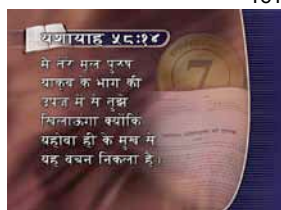 यशायाह ५८:१४
मैं तेरे मूल पुरुष
याकूब के भाग की
उपज में से तुझे
खिलाऊंगा क्योंकि
यहोवा ही के मुख से
यह वचन निकला है।
7